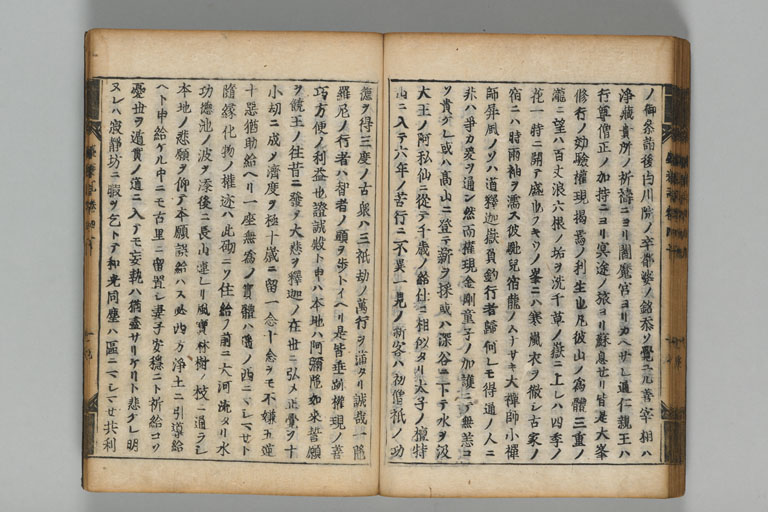 ノ御参詣後白川院ノ卒都婆ノ銘忝ゾ覺ユ元善宰相ハ
淨藏貴所ノ祈禱ニヨリ閻魔官ヨリカヘサレ通仁親王ハ
行尊僧正ノ加持ニヨリ冥途ノ旅ヨリ蘓息せリ皆是大峯
修行ノ効驗權現掲焉ノ利生也凡彼山ノ為體三重ノ
瀧ニ望ハ百丈浪六根ノ垢ヲ洗千草ノ嶽ニ上レハ四季ノ
花一時ニ開テ盛也フキウノ峯ニハ寒嵐衣ヲ徹シ古家ノ
宿ニハ時雨袖ヲ濡ス彼馳兒宿龍ノ大禪師小禪
師屏風ノソハ道釋迦嶽負釣行者歸何レモ得通ノ人ニ
非ハ爭カ爰ヲ通ン然而權現金剛童子ノ加護ニテ無恙コ
ソ貴ケレ或ハ高山ニ登テ薪ヲ採或ハ深谷ニ下テ水ヲ汲
大王ノ阿私仙ニ從テ千歳ノ給仕ニ相似タリ太子ノ檀特
山ニ入テ六年ノ苦行ニ不異一見ノ新客ハ初僧祇ノ功
德ヲ得三度ノ古衆ハ三祇劫ノ萬行ヲ滿タリ誠哉一陀
羅尼ノ行者ハ智者ノ頭ヲ歩トイヘリ是皆垂跡權現ノ善
巧方便ノ利益也證誠殿ト申ハ本地ハ阿彌陀如来誓願
ヲ饒王ノ往昔ニ發ヲ大悲ヲ釋迦ノ在世ニ弘メ正覺ヲ十
小劫ニ成ノ濟度ヲ極十歳ニ留一念十念ヲモ不嫌五逆
十惡猶助給ヘリ一座無為ノ實體ハ瀉ノ西ニマシマせトモ
隨緣化物ノ權迹ハ此砌ニソ住給フ前ニ大河流タリ水
功德池ノ波ヲ添後ニ長山連レリ風寳林樹ノ枝ニ通ラシ
本地ノ悲願ヲ仰テ本願誤給ハス必西方淨土ニ引導給
ヘト申給ケル中ニモ古里ニ留置シ妻子安穩ニト祈給コソ
憂世ヲ遁實ノ道ニ入テモ妄執ハ猶盡サリケリト悲ケレ明
ヌレハ寂靜坊ニ暇ヲ乞トテ和光同塵ハ區ニマシマせ共利